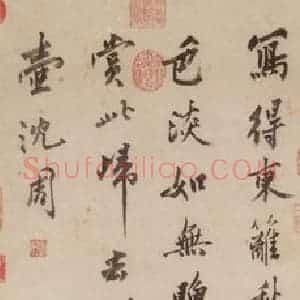 寫得東籬秋
色淡如無賖
賞此歸去
壺沈周
Shufaziliao.COM